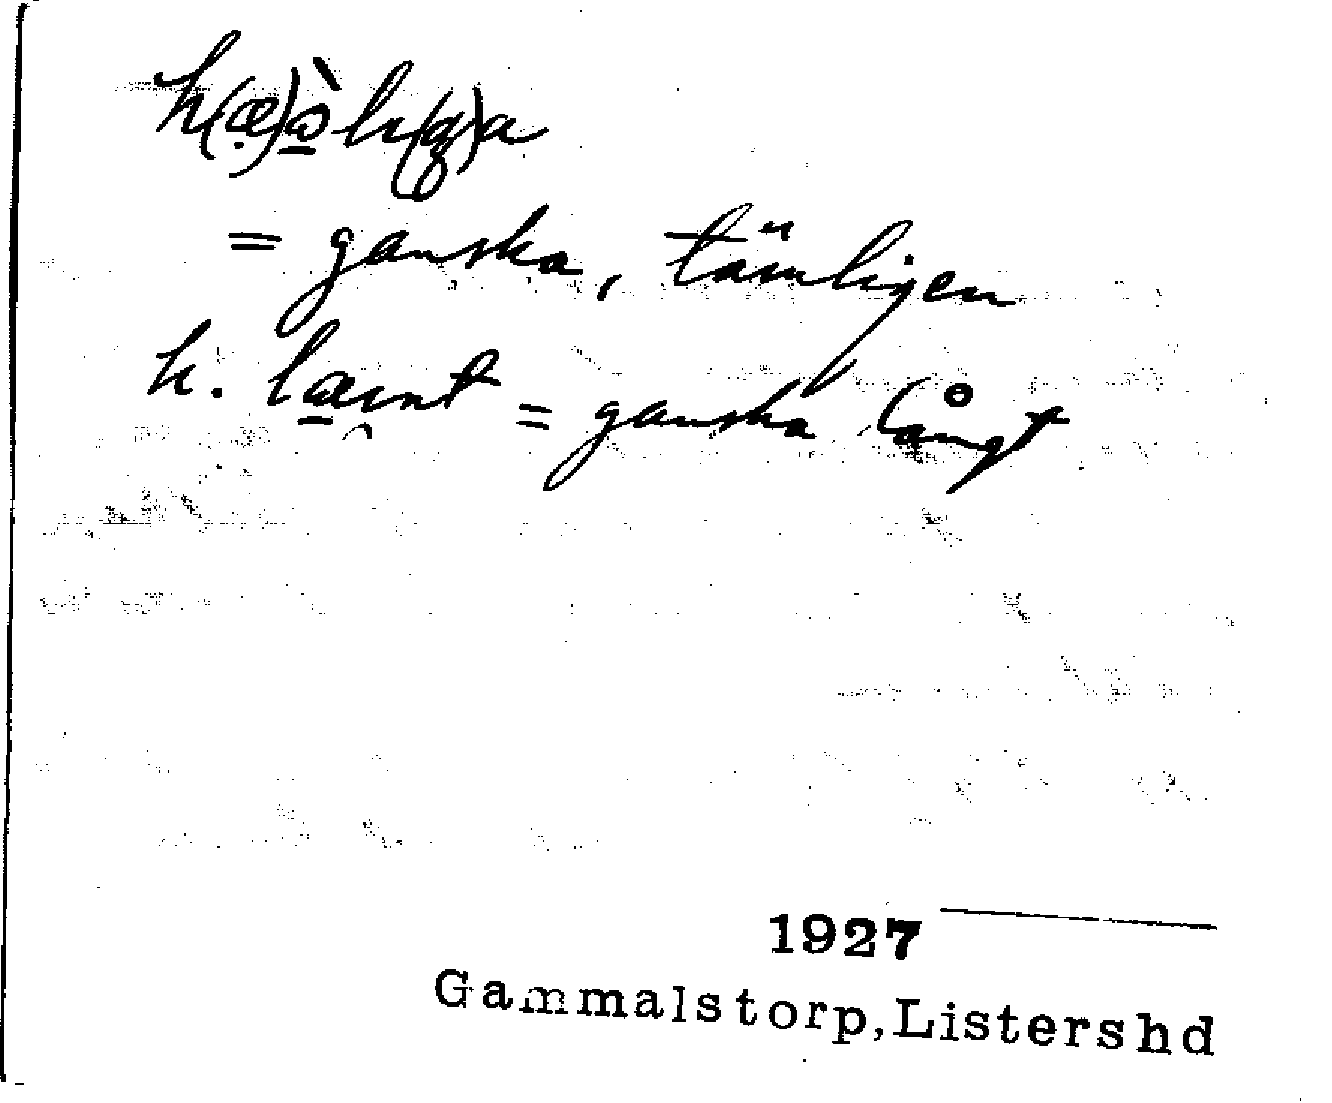 = ganska, tämligen
h. = ganska långt
1927
Gammalstorp, Listershd